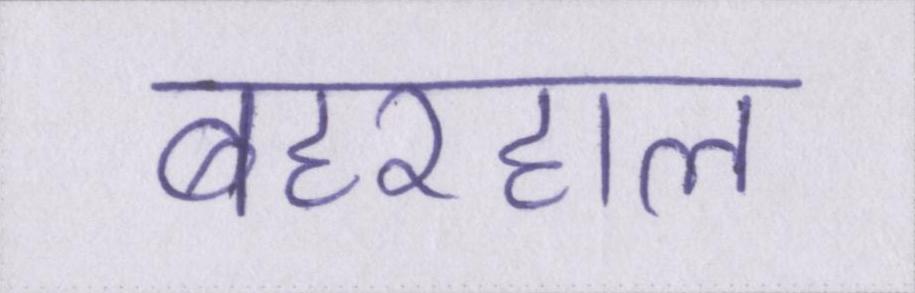 बहरहाल